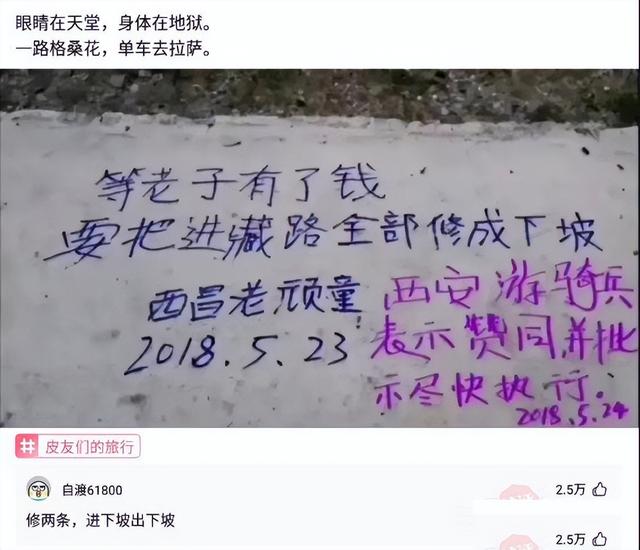 眼睛在天堂，身体在地狱。
一路格桑花，单车去拉萨。
等老子有了钱
要把进藏路全部修成下坡
西昌老顽童
2018.5.23
西安游骑兵
表示赞同并批
示尽快执行。
2018.5.24
# 皮友们的旅行
自渡61800
2.5万
修两条，进下坡出下坡
2.5万